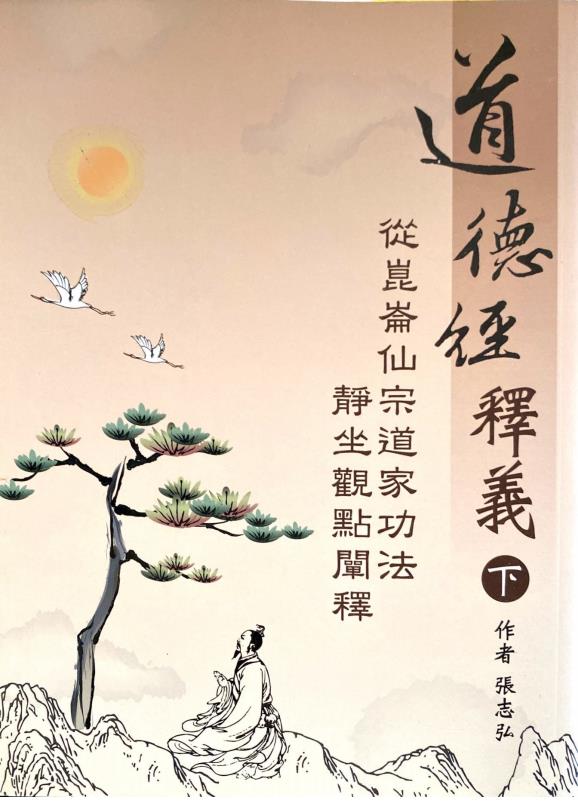 道德經釋義
下
作者 張志弘
從崑崙仙宗道家功法
靜坐觀點闡釋